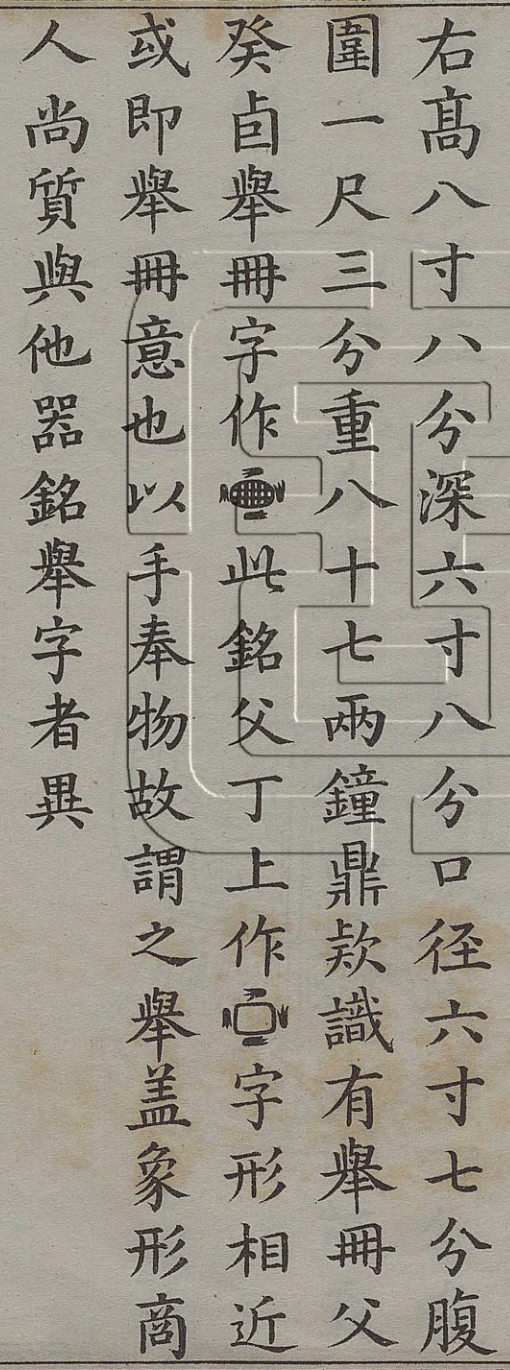 右高八寸八分深六寸八分口径六寸七分腹
圍一尺三分重八十七兩鐘鼎欵識有舉冊父
癸卣舉冊字作此銘父丁上作字形相近
或即舉冊意也以手奉物故謂之舉盖象形商
人尚質與他器銘舉字者異